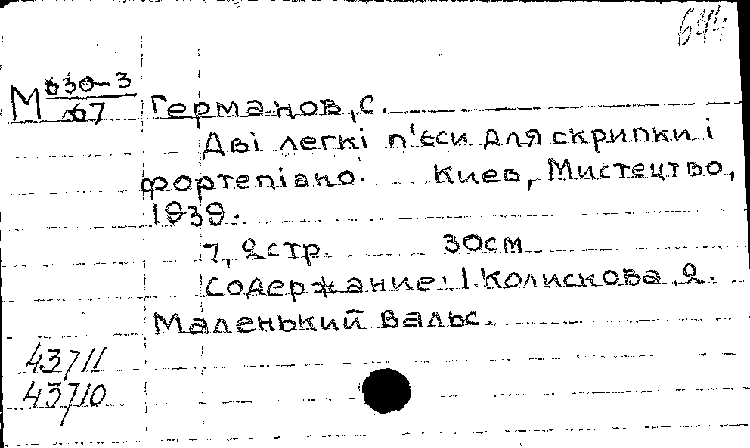 644
М 630-3
67
Германов, С.
Дві легкі п'єси для скрипки і
фортепіано. Киев, Мистецтво,
1939.
7, 2 стр. 30 см
Содержание: 1. Колискова, 2.
Маленький вальс.
43711
43710